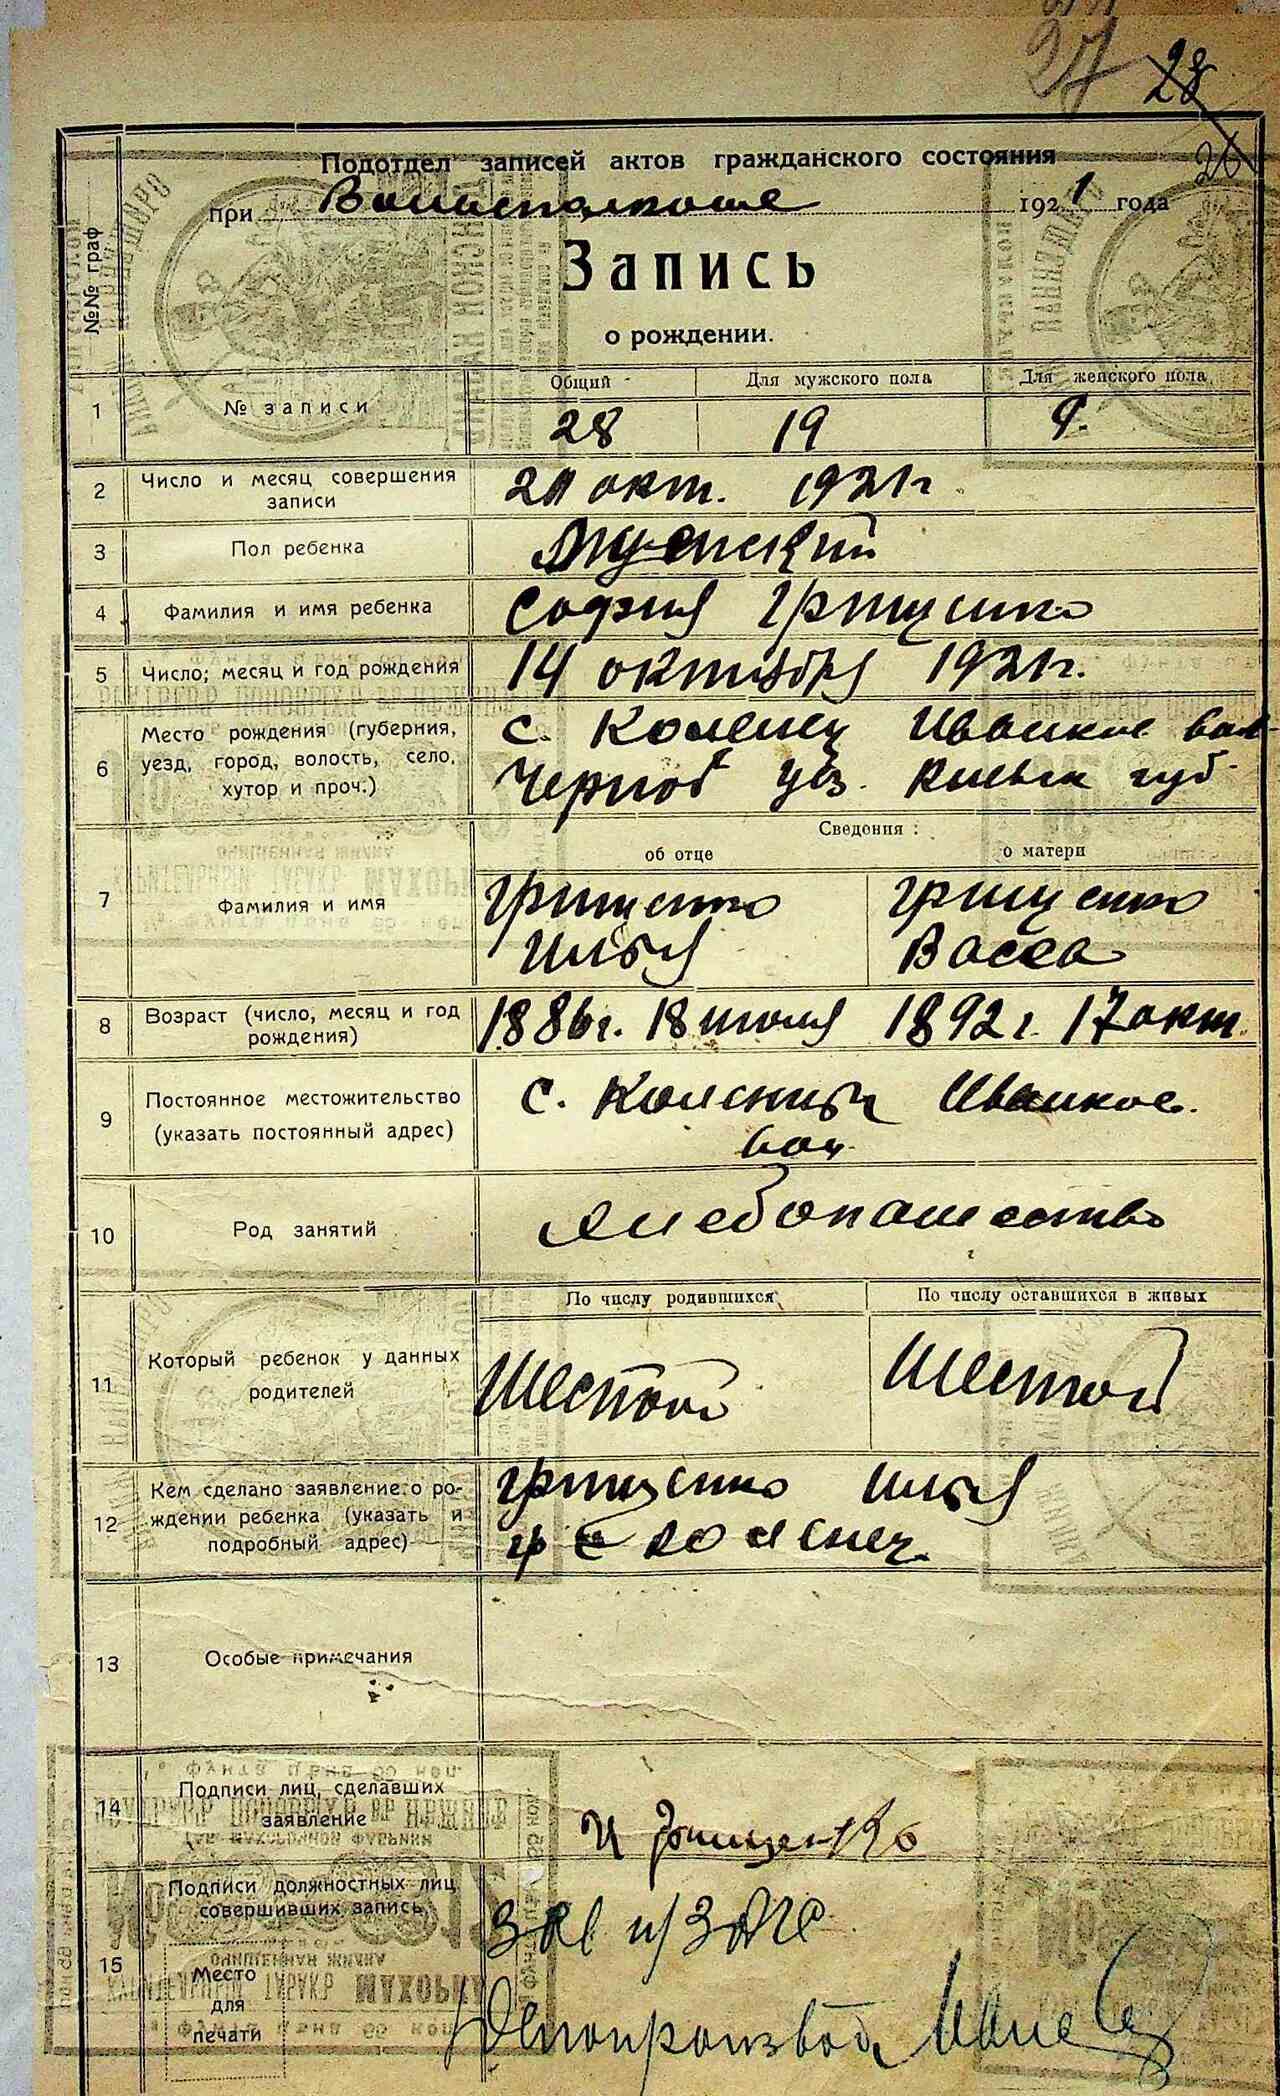 27 28
26
Подотдел записей актов гражданского состояния
при Волисполкоме 1921 года
№№ граф
Запись
о рождении.
1 № записи Общий Для мужского пола Для женского пола
28 19 9.
2 Число и месяц совершения записи
окт. 1921г
3 Пол ребенка
4 Фамилия и имя ребенка
София Грищенко
5 Число, месяц и год рождения
14 октября 1921г.
6 Место рождения (губерния, уезд, город, волость, село, хутор и проч.)
с. Коленец Иванков вол
Черноб уез. Киевск губ.
Сведения:
об отце о матери
7 Фамилия и имя
Грищенко Грищенко
Илья Васса
8 Возраст (число, месяц и год рождения)
1886г. 18 июля 1892г. 17 окт.
9 Постоянное местожительство (указать постоянный адрес)
с. Иванков.
вол.
10 Род занятий
хлебопашество
По числу родившихся По числу оставшихся в живых
11 Который ребенок у данных родителей
Шестой Шестой
12 Кем сделано заявление о рождении ребенка (указать и подробный адрес)
Грищенко Илья
гр с Коленец
13 Особые примечания
14 Подписи лиц, сделавших заявление
И Грищенко
15 Подписи должностных лиц, совершивших запись.
Зав п/ЗАГС
Место
для
печати
Делопроизвод
МАХОРКА